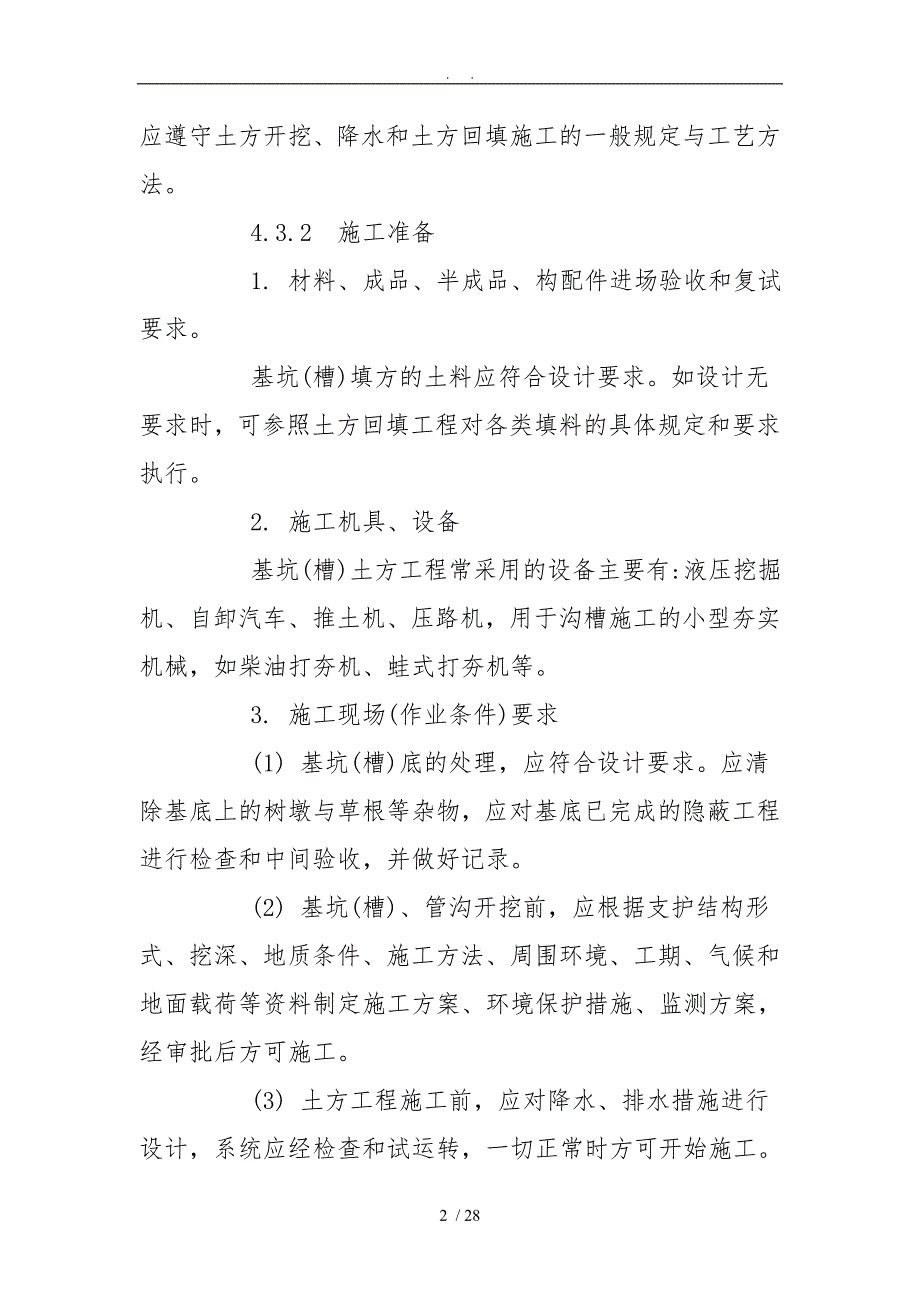 应遵守土方开挖、降水和土方回填施工的一般规定与工艺方
法。
4.3.2 施工准备
1. 材料、成品、半成品、构配件进场验收和复试
要求。
基坑(槽)填方的土料应符合设计要求。如设计无
要求时，可参照土方回填工程对各类填料的具体规定和要求
执行。
2. 施工机具、设备
基坑(槽)土方工程常采用的设备主要有:液压挖掘
机、自卸汽车、推土机、压路机，用于沟槽施工的小型夯实
机械，如柴油打夯机、蛙式打夯机等。
3. 施工现场(作业条件)要求
(1) 基坑(槽)底的处理，应符合设计要求。应清
除基底上的树墩与草根等杂物，应对基底已完成的隐蔽工程
进行检查和中间验收，并做好记录。
(2) 基坑(槽)、管沟开挖前，应根据支护结构形
式、挖深、地质条件、施工方法、周围环境、工期、气候和
地面载荷等资料制定施工方案、环境保护措施、监测方案，
经审批后方可施工。
(3) 土方工程施工前，应对降水、排水措施进行
设计，系统应经检查和试运转，一切正常时方可开始施工。
2 / 28